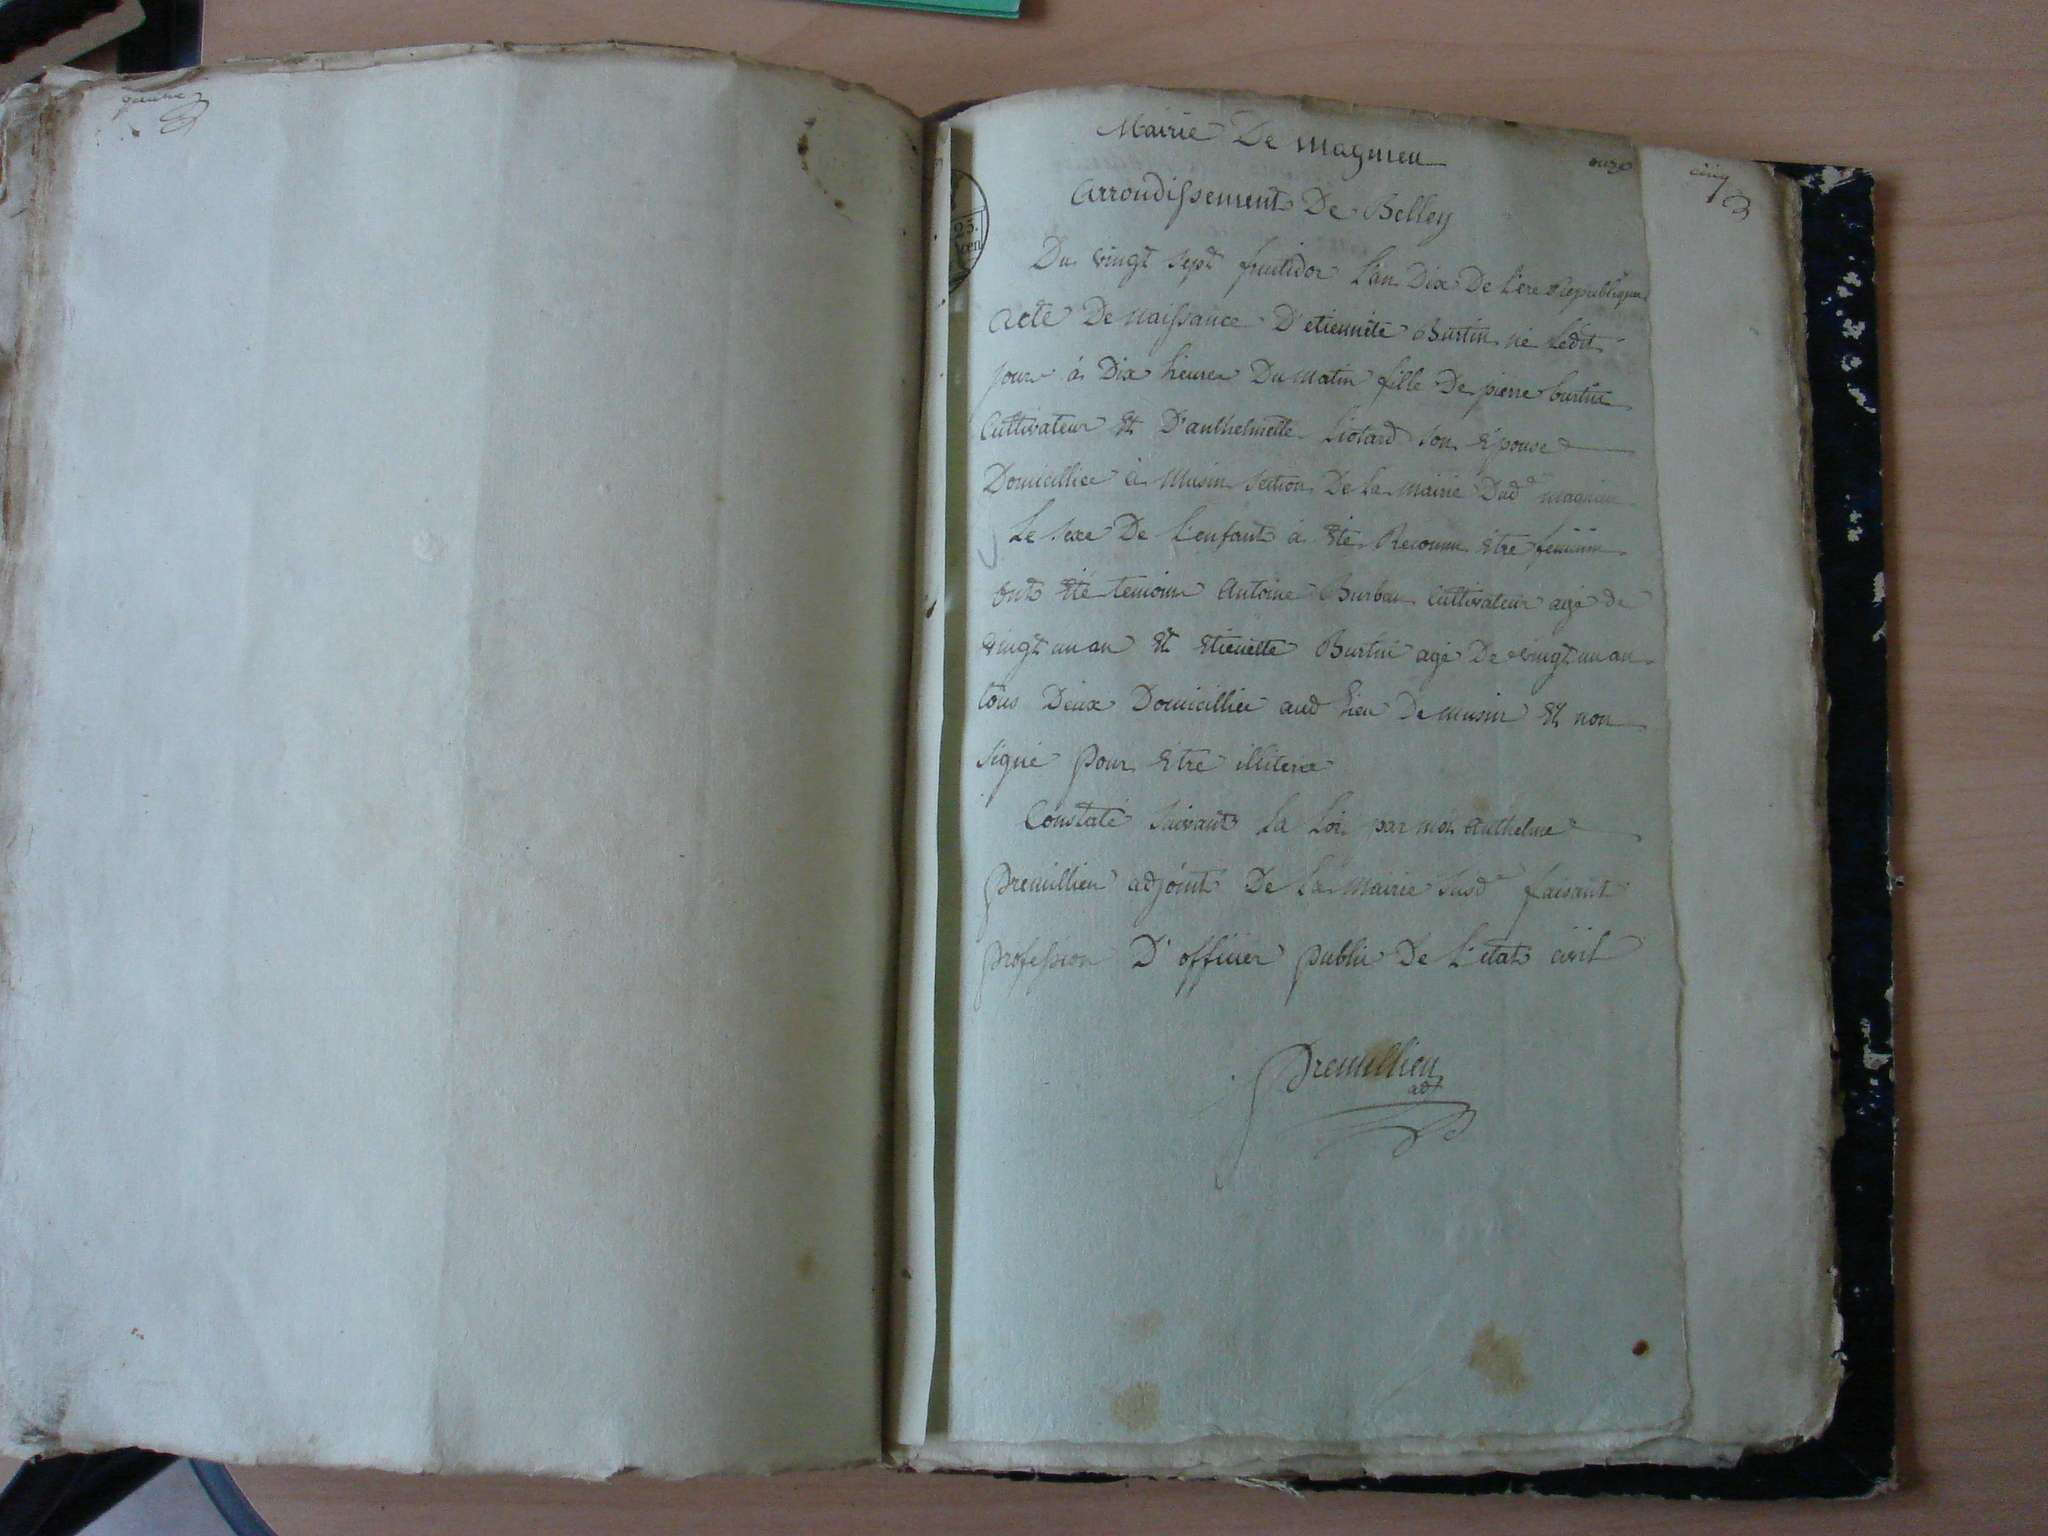 Mairie De magnieu
onze
cinq
arrondissement De Belley
25.
cen
Du vingt sept fructidor l'an Dix De l'ere Republiquene
acte De naissance D'etiennete Burtin né ledit
jour à Dix heures Du matin fille De pierre burtin
Cultivateur et D'anthelmette liotard son épouse
Domicilliee à Musin section De la mairie Dud. magnieu
Le sexe De L'enfant à été Reconnu être feminin
ont été temoins Antoine Burban Cultivateur agé de
vingt un an et etienette Burtin agé De vingt un an
tous Deux Domicilliés aud lieu De musin et non
signé pour être illiteré
Constaté suivant la Loi par moi anthelme
premillieu adjoint De la Mairie susd. faisant
profession D'officier public De L'etat civil
Premillieu
adt